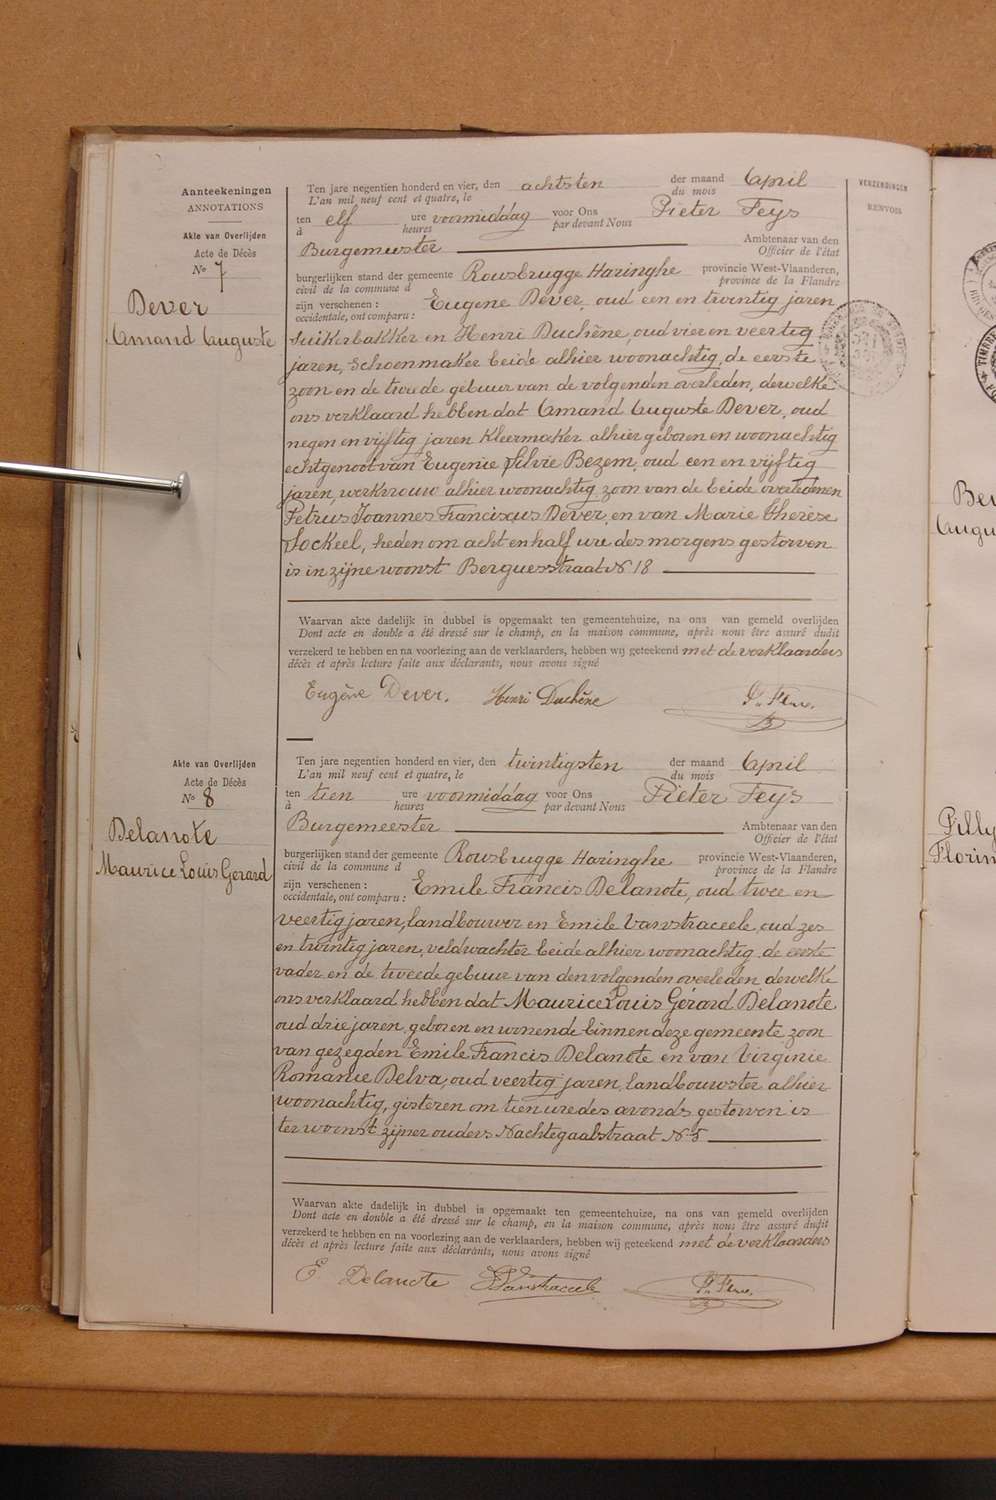 Aanteekeningen
ANNOTATIONS
Akte van Overlijden
Acte de Décès
No 7
Dever
Amand Auguste
Ten jare negentien honderd en vier, den achtsten der maand April
L'an mil neuf cent et quatre, le du mois
ten elf ure voormiddag voor Ons Pieter Feys
à heures par devant Nous
Burgemeester Ambtenaar van den
Officier de l'état
burgerlijken stand der gemeente Rousbrugge Haringhe provincie West-Vlaanderen,
civil de la commune d province de la Flandre
zijn verschenen : Eugène Dever, oud een en twintig jaren,
occidentale, ont comparu :
suikerbakker en Henri Duchêne, oud vier en veertig
jaren, schoenmaker beide alhier woonachtig, de eerste
zoon en de tweede gebuur van de volgenden overleden, dewelke
ons verklaard hebben dat Amand Auguste Dever, oud
negen en vijftig jaren kleermaker alhier geboren en woonachtig
echtgenoot van Eugenie Silvie Bezem, oud een en vijftig
jaren, werkvrouw alhier woonachtig zoon van de beide overledenen
Petrus Joannes Franciscus Dever, en van Marie Therèse
Sockeel, heden om acht en half ure des morgens gestorven
is in zijne woonst Berguesstraat No 18
Waarvan akte dadelijk in dubbel is opgemaakt ten gemeentehuize, na ons van gemeld overlijden
Dont acte en double a été dressé sur le champ, en la maison commune, après nous être assuré dudit
verzekerd te hebben en na voorlezing aan de verklaarders, hebben wij geteekend met de verklaarders
décès et après lecture faite aux déclarants, nous avons signé
Eugène Dever. Henri Duchêne
VERZENDINGEN
RENVOIS
Akte van Overlijden
Acte de Décès
No 8
Delanote
Maurice Louis Gerard
Ten jare negentien honderd en vier, den twintigsten der maand April
L'an mil neuf cent et quatre, le du mois
ten tien ure voormiddag voor Ons Pieter Feys
à heures par devant Nous
Burgemeester Ambtenaar van den
Officier de l'état
burgerlijken stand der gemeente Rousbrugge Haringhe provincie West-Vlaanderen,
civil de la commune d province de la Flandre
zijn verschenen : Emile Francis Delanote, oud twee en
occidentale, ont comparu :
veertig jaren, landbouwer en Emile Vanstraceele, oud zes
en twintig jaren, veldwachter beide alhier woonachtig, de eerste
vader en de tweede gebuur van den volgenden overleden, dewelke
ons verklaard hebben dat Maurice Louis Gérard Delanote
oud drie jaren, geboren en wonende binnen deze gemeente zoon
van gezegden Emile Francis Delanote en van Virginie
Romanie Delva, oud veertig jaren, landbouwster alhier
woonachtig, gisteren om tien ure des avonds gestorven is
ter woonst zijner ouders Nachtegaalstraat No 5
Waarvan akte dadelijk in dubbel is opgemaakt ten gemeentehuize, na ons van gemeld overlijden
Dont acte en double a été dressé sur le champ, en la maison commune, après nous être assuré dudit
verzekerd te hebben en na voorlezing aan de verklaarders, hebben wij geteekend met de verklaarders
décès et après lecture faite aux déclarants, nous avons signé
E Delanote E Vanstraceele